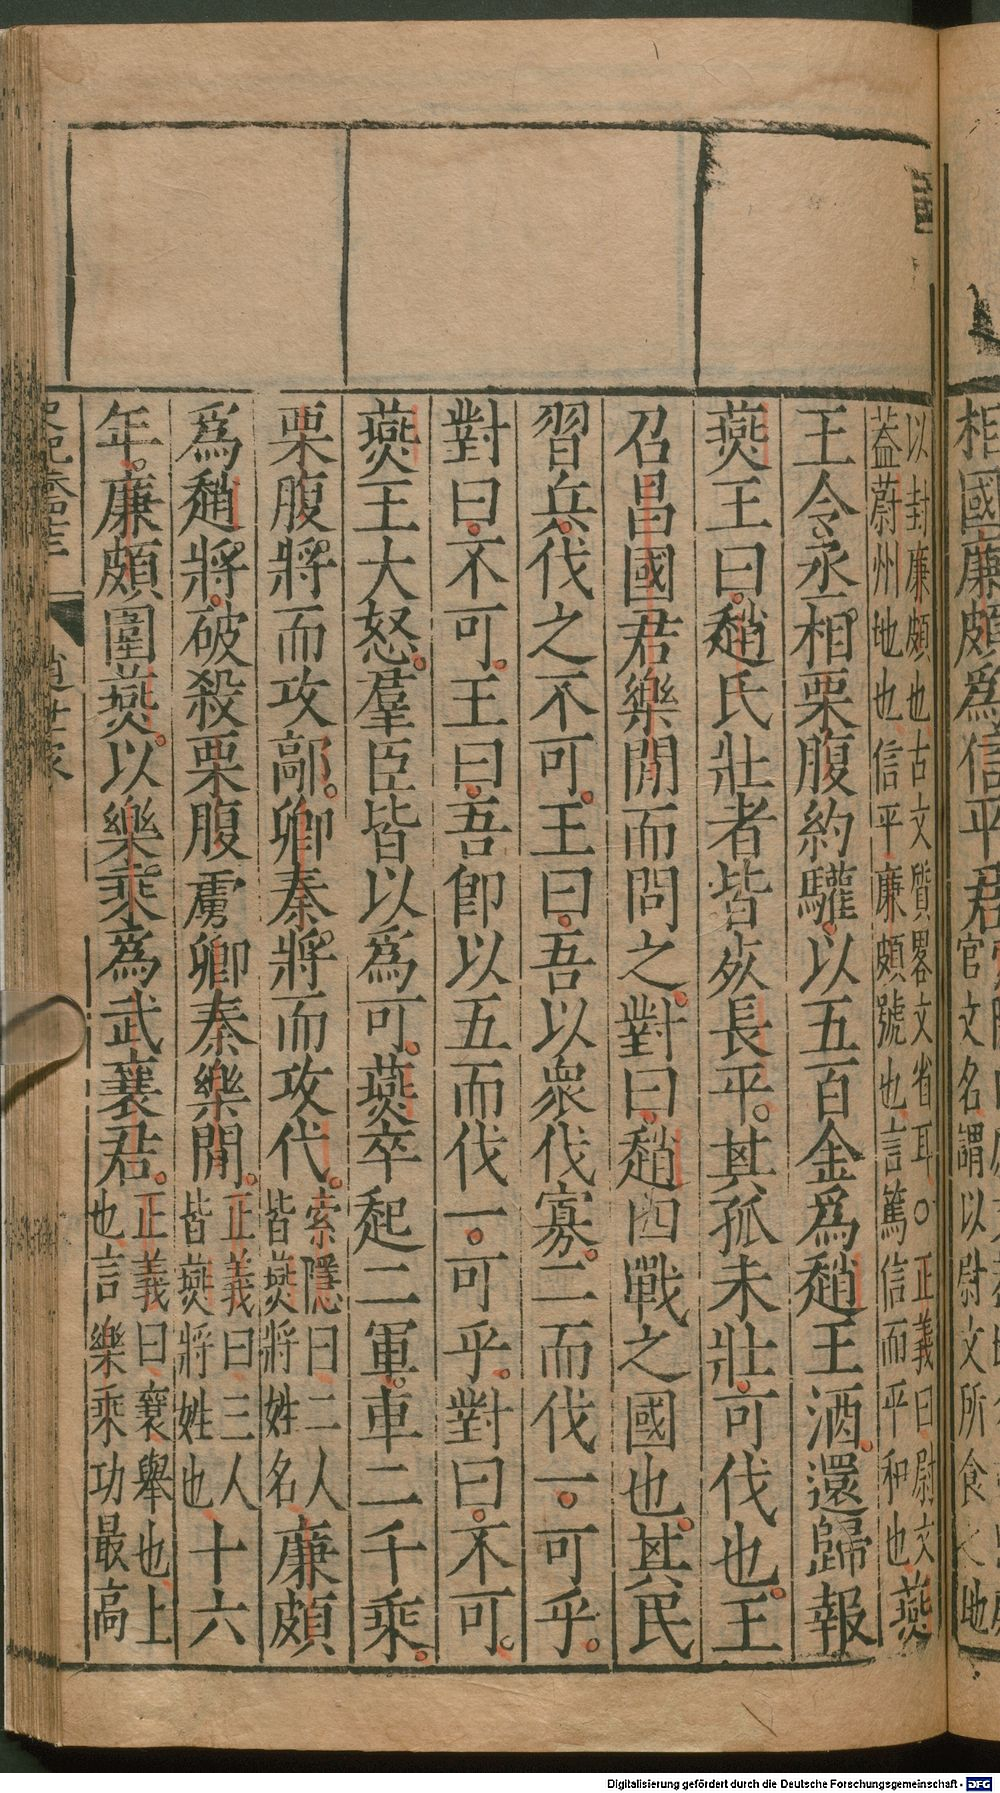 相國廉頗爲信平君
官文名謂以尉文所食之地
以封廉頗也古文質畧文省耳○正義曰尉文
葢蔚州地也信平廉頗號也言篤信而平和也燕
王令丞相栗腹約驩以五百金爲趙王酒還歸報
燕王曰趙氏壯者皆死長平其孤未壯可伐也王
召昌國君樂閒而問之對曰趙四戰之國也其民
習兵伐之不可王曰吾以衆伐寡二而伐一可乎
對曰不可王曰吾卽以五而伐一可乎對曰不可
燕王大怒羣臣皆以爲可燕卒起二軍車二千乘
栗腹將而攻鄗卿秦將而攻代
索隱曰二人
皆燕將姓名
廉頗
爲趙將破殺栗腹虜卿秦樂閒
正義曰三人
皆燕將姓也
十六
年廉頗圍燕以樂乘爲武襄君
正義曰襄舉也上
也言樂乘功最高
趙世家
Digitalisierung gefördert durch die Deutsche Forschungsgemeinschaft - DFG